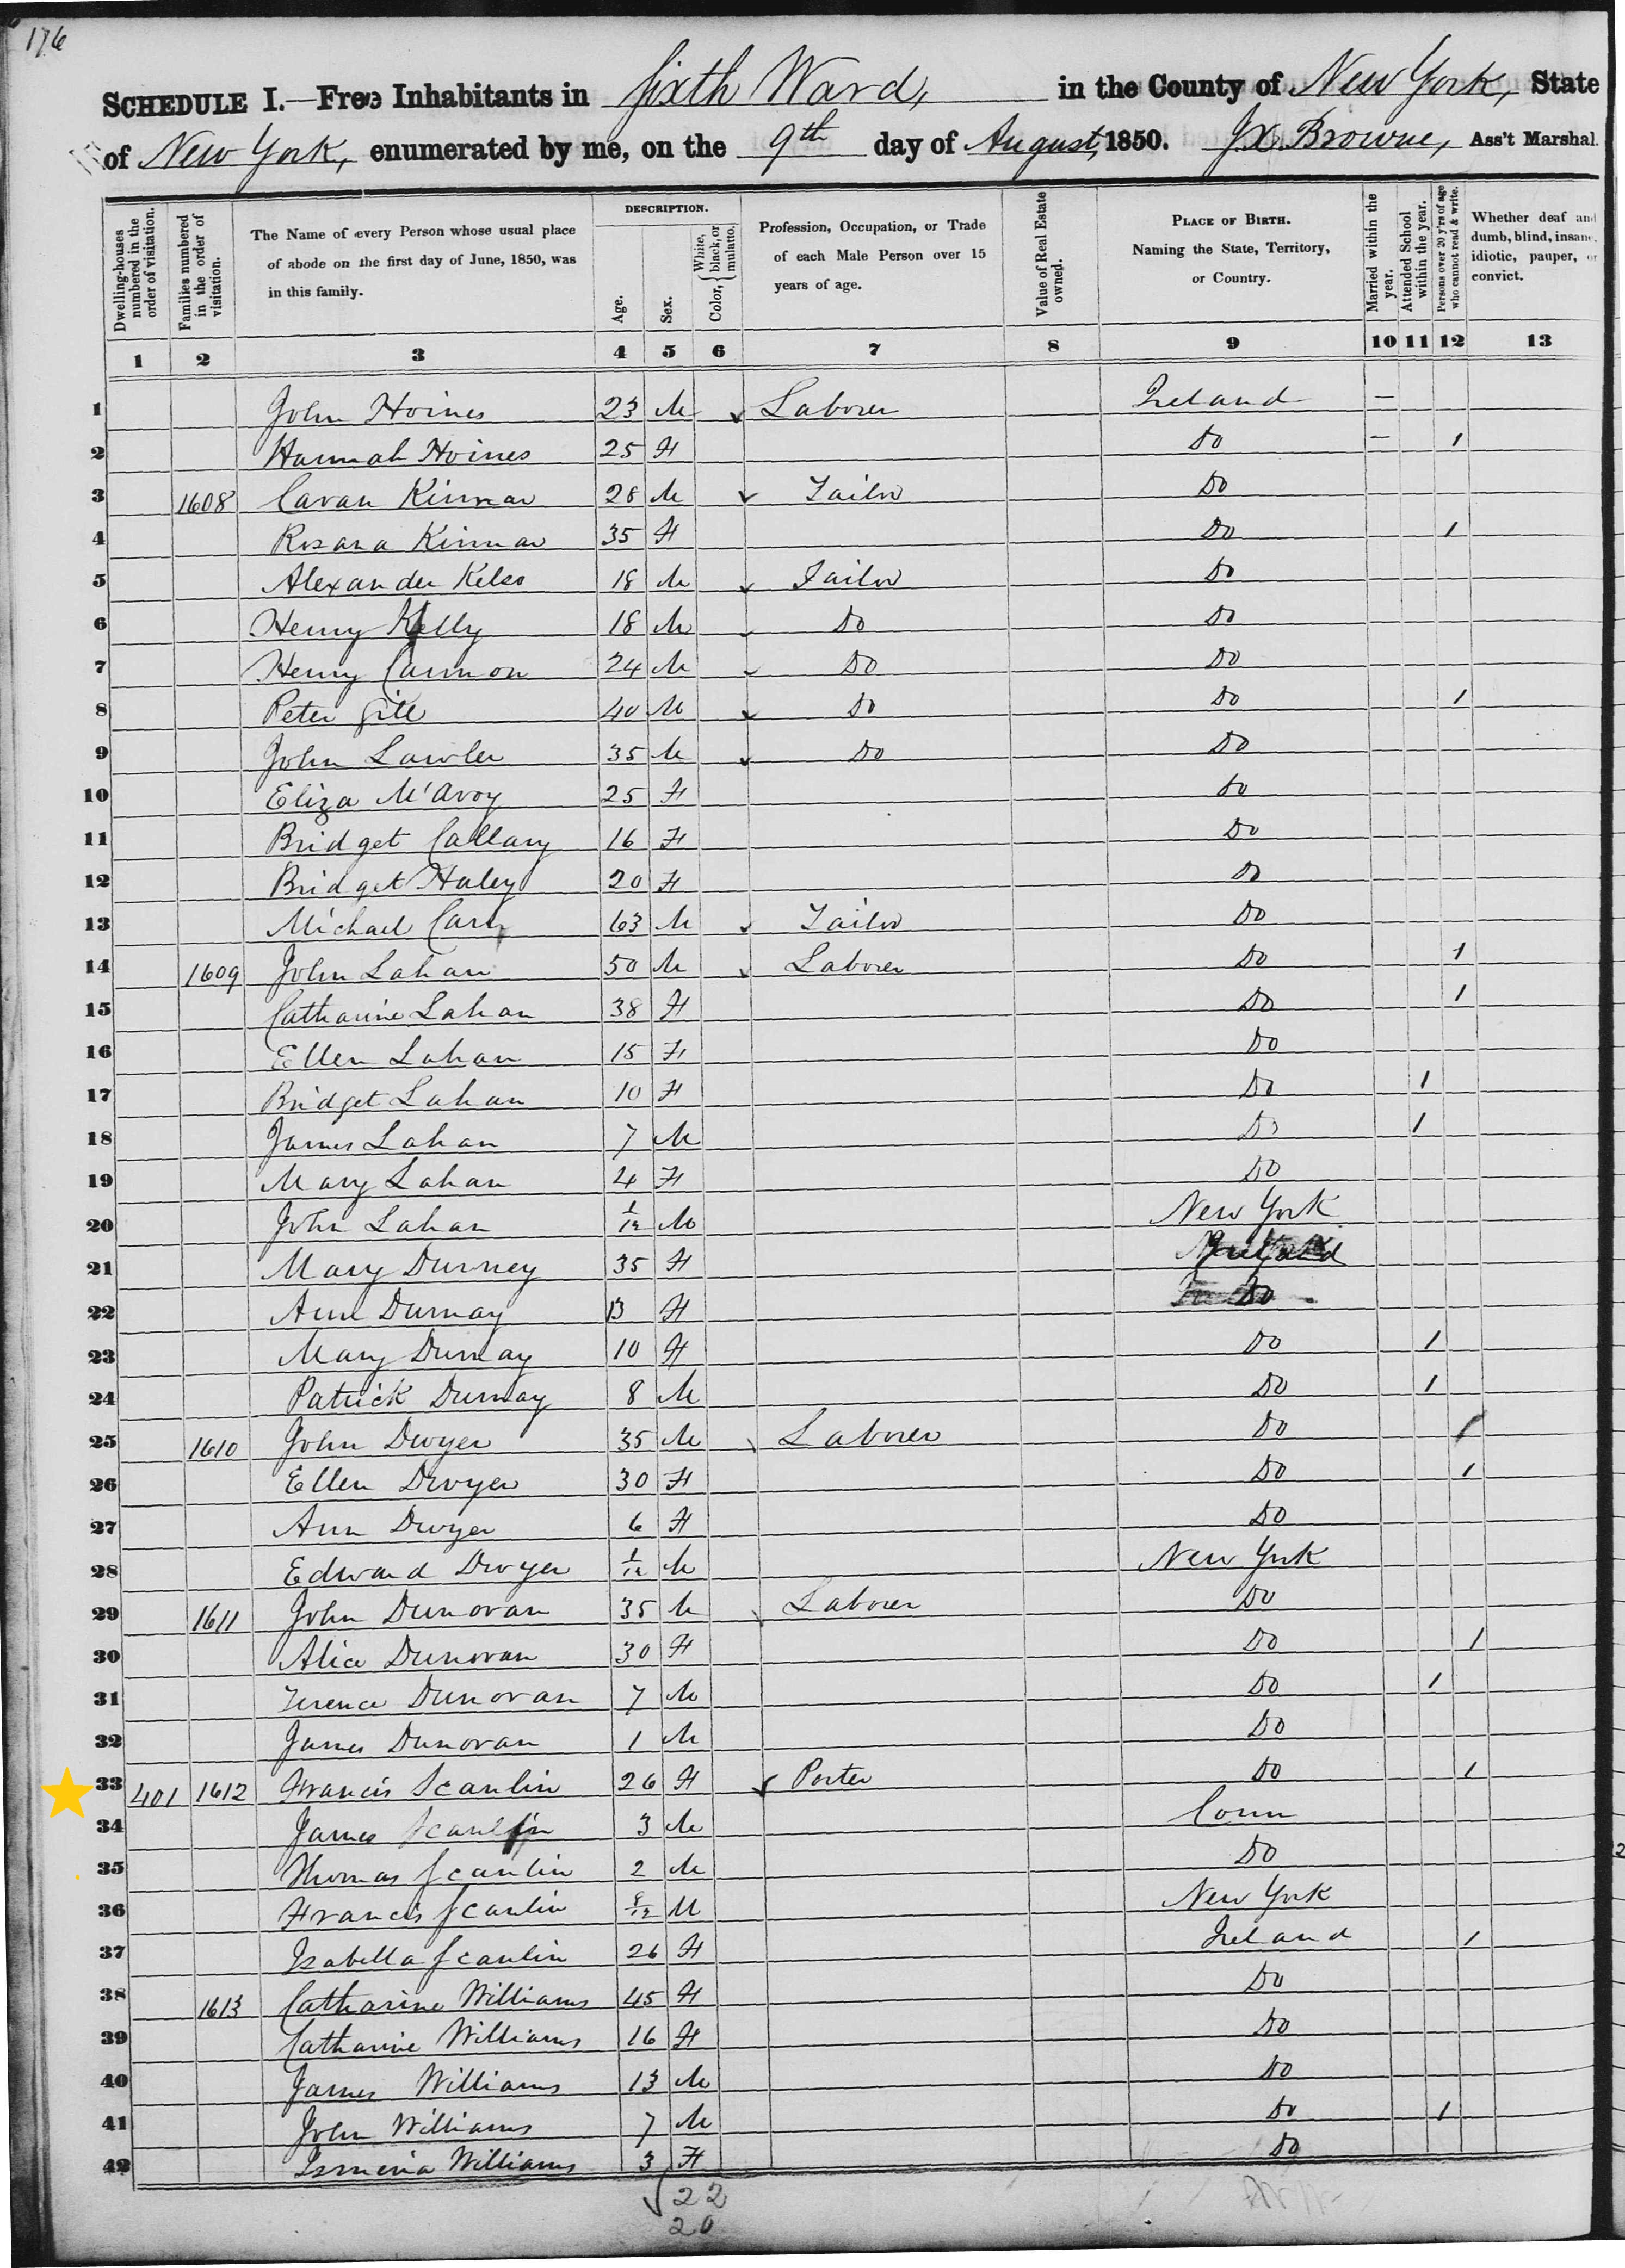 176
SCHEDULE I.—Free Inhabitants in Sixth Ward, in the County of New York, State
of New York, enumerated by me, on the 9th day of August, 1850. J. D. Browne, Ass't Marshal.
Dwelling-houses numbered in the order of visitation.
Families numbered in the order of visitation.
The Name of every Person whose usual place of abode on the first day of June, 1850, was in this family.
DESCRIPTION.
Age.
Sex.
Color, { White, black, or mulatto.
Profession, Occupation, or Trade of each Male Person over 15 years of age.
Value of Real Estate owned.
PLACE OF BIRTH. Naming the State, Territory, or Country.
Married within the year.
Attended School within the year.
Persons over 20 y'rs of age who cannot read & write.
Whether deaf and dumb, blind, insane, idiotic, pauper, or convict.
1 2 3 4 5 6 7 8 9 10 11 12 13
1 John Hoines 23 M Laborer Ireland —
2 Hannah Hoines 25 F Do — 1
3 1608 Cavan Kinnar 28 M Tailor Do
4 Rosana Kinnar 35 F Do 1
5 Alexander Kelso 18 M Tailor Do
6 Henry Kelly 18 M Do Do
7 Henry Cannon 24 M Do Do
8 Peter Gill 40 M Do Do 1
9 John Lawler 35 M Do Do
10 Eliza M'Avoy 25 F Do
11 Bridget Callary 16 F Do
12 Bridget Haley 20 F Do
13 Michael Carr 63 M Tailor Do
14 1609 John Lahan 50 M Laborer Do 1
15 Catharine Lahan 38 F Do 1
16 Ellen Lahan 15 F Do
17 Bridget Lahan 10 F Do 1
18 James Lahan 7 M Do 1
19 Mary Lahan 4 F Do
20 John Lahan 1/12 M New York
21 Mary Durney 35 F Ireland
22 Ann Durnay 13 F Do
23 Mary Durnay 10 F Do 1
24 Patrick Durnay 8 M Do 1
25 1610 John Dwyer 35 M Laborer Do 1
26 Ellen Dwyer 30 F Do 1
27 Ann Dwyer 6 F Do
28 Edward Dwyer 1/12 M New York
29 1611 John Dunovan 35 M Laborer Do
30 Alice Dunovan 30 F Do 1
31 Terence Dunovan 7 M Do 1
32 James Dunovan 1 M Do
33 401 1612 Francis Scanlin 26 F Porter Do 1
34 James Scanlin 3 M Conn
35 Thomas Scanlin 2 M Do
36 Francis Scanlin 8/12 M New York
37 Isabella Scanlin 26 F Ireland 1
38 1613 Catharine Williams 45 F Do
39 Catharine Williams 16 F Do
40 James Williams 13 M Do
41 John Williams 7 M Do 1
42 Williams 3 F Do
22
20